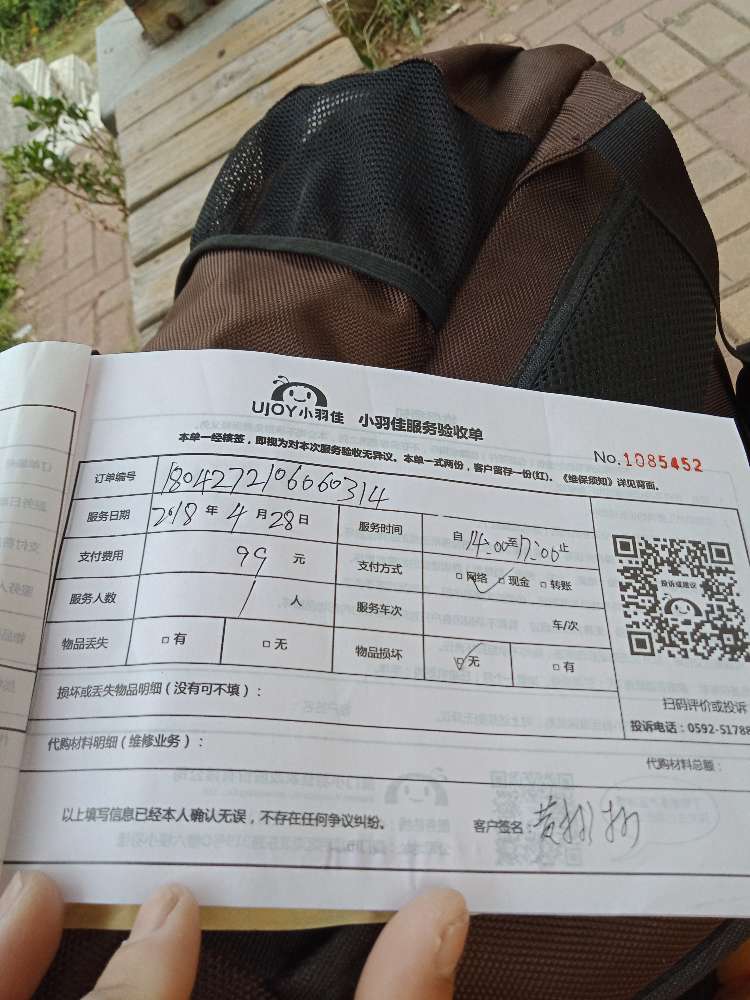 UJOY小羽佳 小羽佳服务验收单
本单一经核签，即视为对本次服务验收无异议。本单一式两份，客户留存一份(红)。《维保须知》详见背面。
No.1085452
订单编号 1804272106660314
服务日期 2018 年 4 月 28 日 服务时间 自 14:00 至 17:00 止
支付费用 99 元 支付方式 □ 网络 □ 现金 □ 转账
服务人数 1 人 服务车次 车/次
物品丢失 □ 有 □ 无 物品损坏 □ 无 □ 有
投诉或建议
扫码评价或投诉
投诉电话：0592-51788
损坏或丢失物品明细（没有可不填）：
代购材料明细（维修业务）：
代购材料总额：
以上填写信息已经本人确认无误，不存在任何争议纠纷。
客户签名：黄